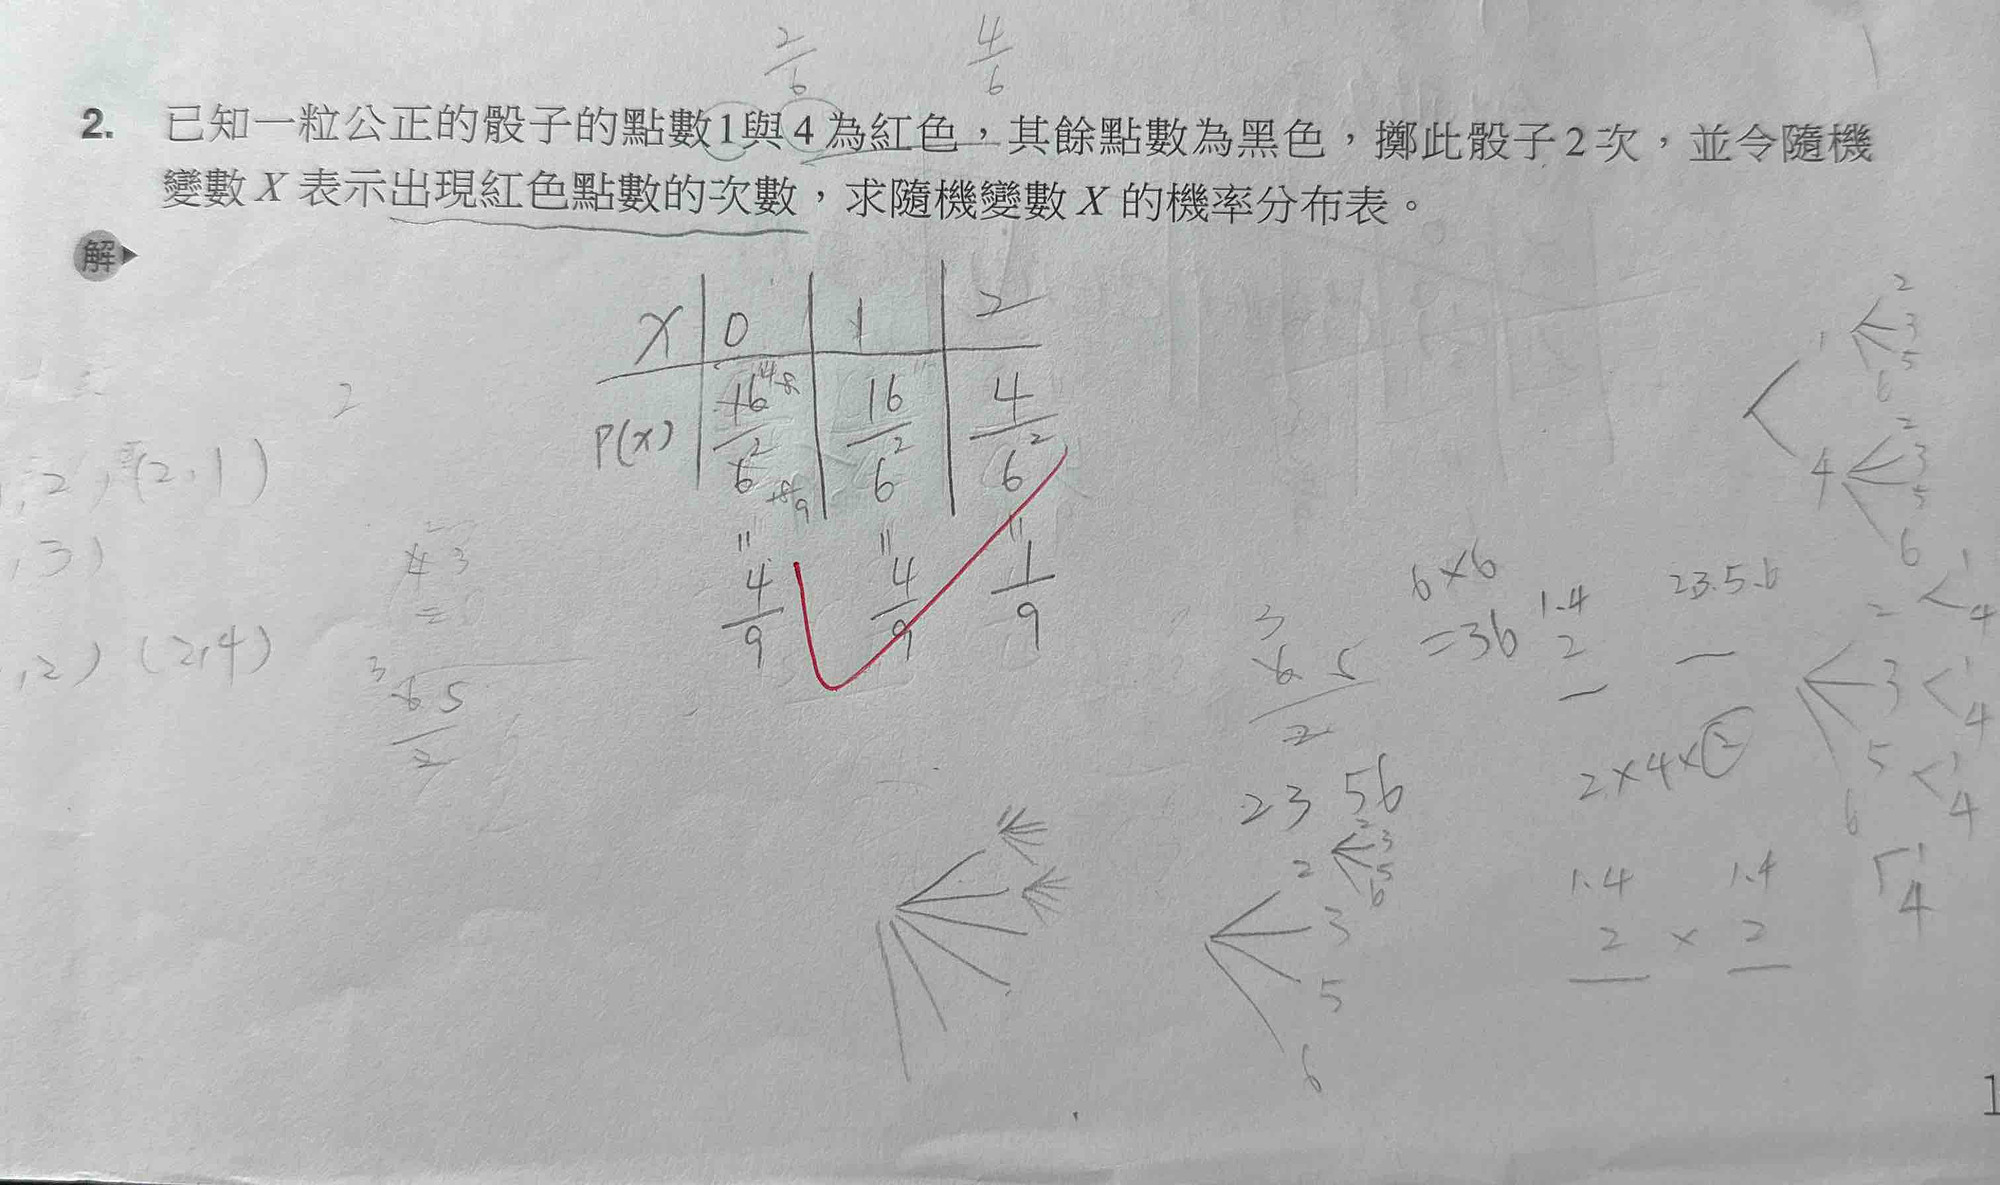 2/6 4/6
2. 已知一粒公正的骰子的點數1與4為紅色，其餘點數為黑色，擲此骰子2次，並令隨機
變數 X 表示出現紅色點數的次數，求隨機變數 X 的機率分布表。
解
X 0 1 2
P(x) 16/6² 16/6² 4/6²
" " "
4/9 4/9 1/9
2
,2, (2,1)
,3)
,2) (2,4)
6×6
=36
1.4
2
23.5.6
2×4×2
23 56
2 2 3 5 6
3
5
6
1.4 1.4
2 × 2
1 2 3 5 6
4 2 3 5 6
2 1 4
3 1 4
5 1 4
6 1 4
1